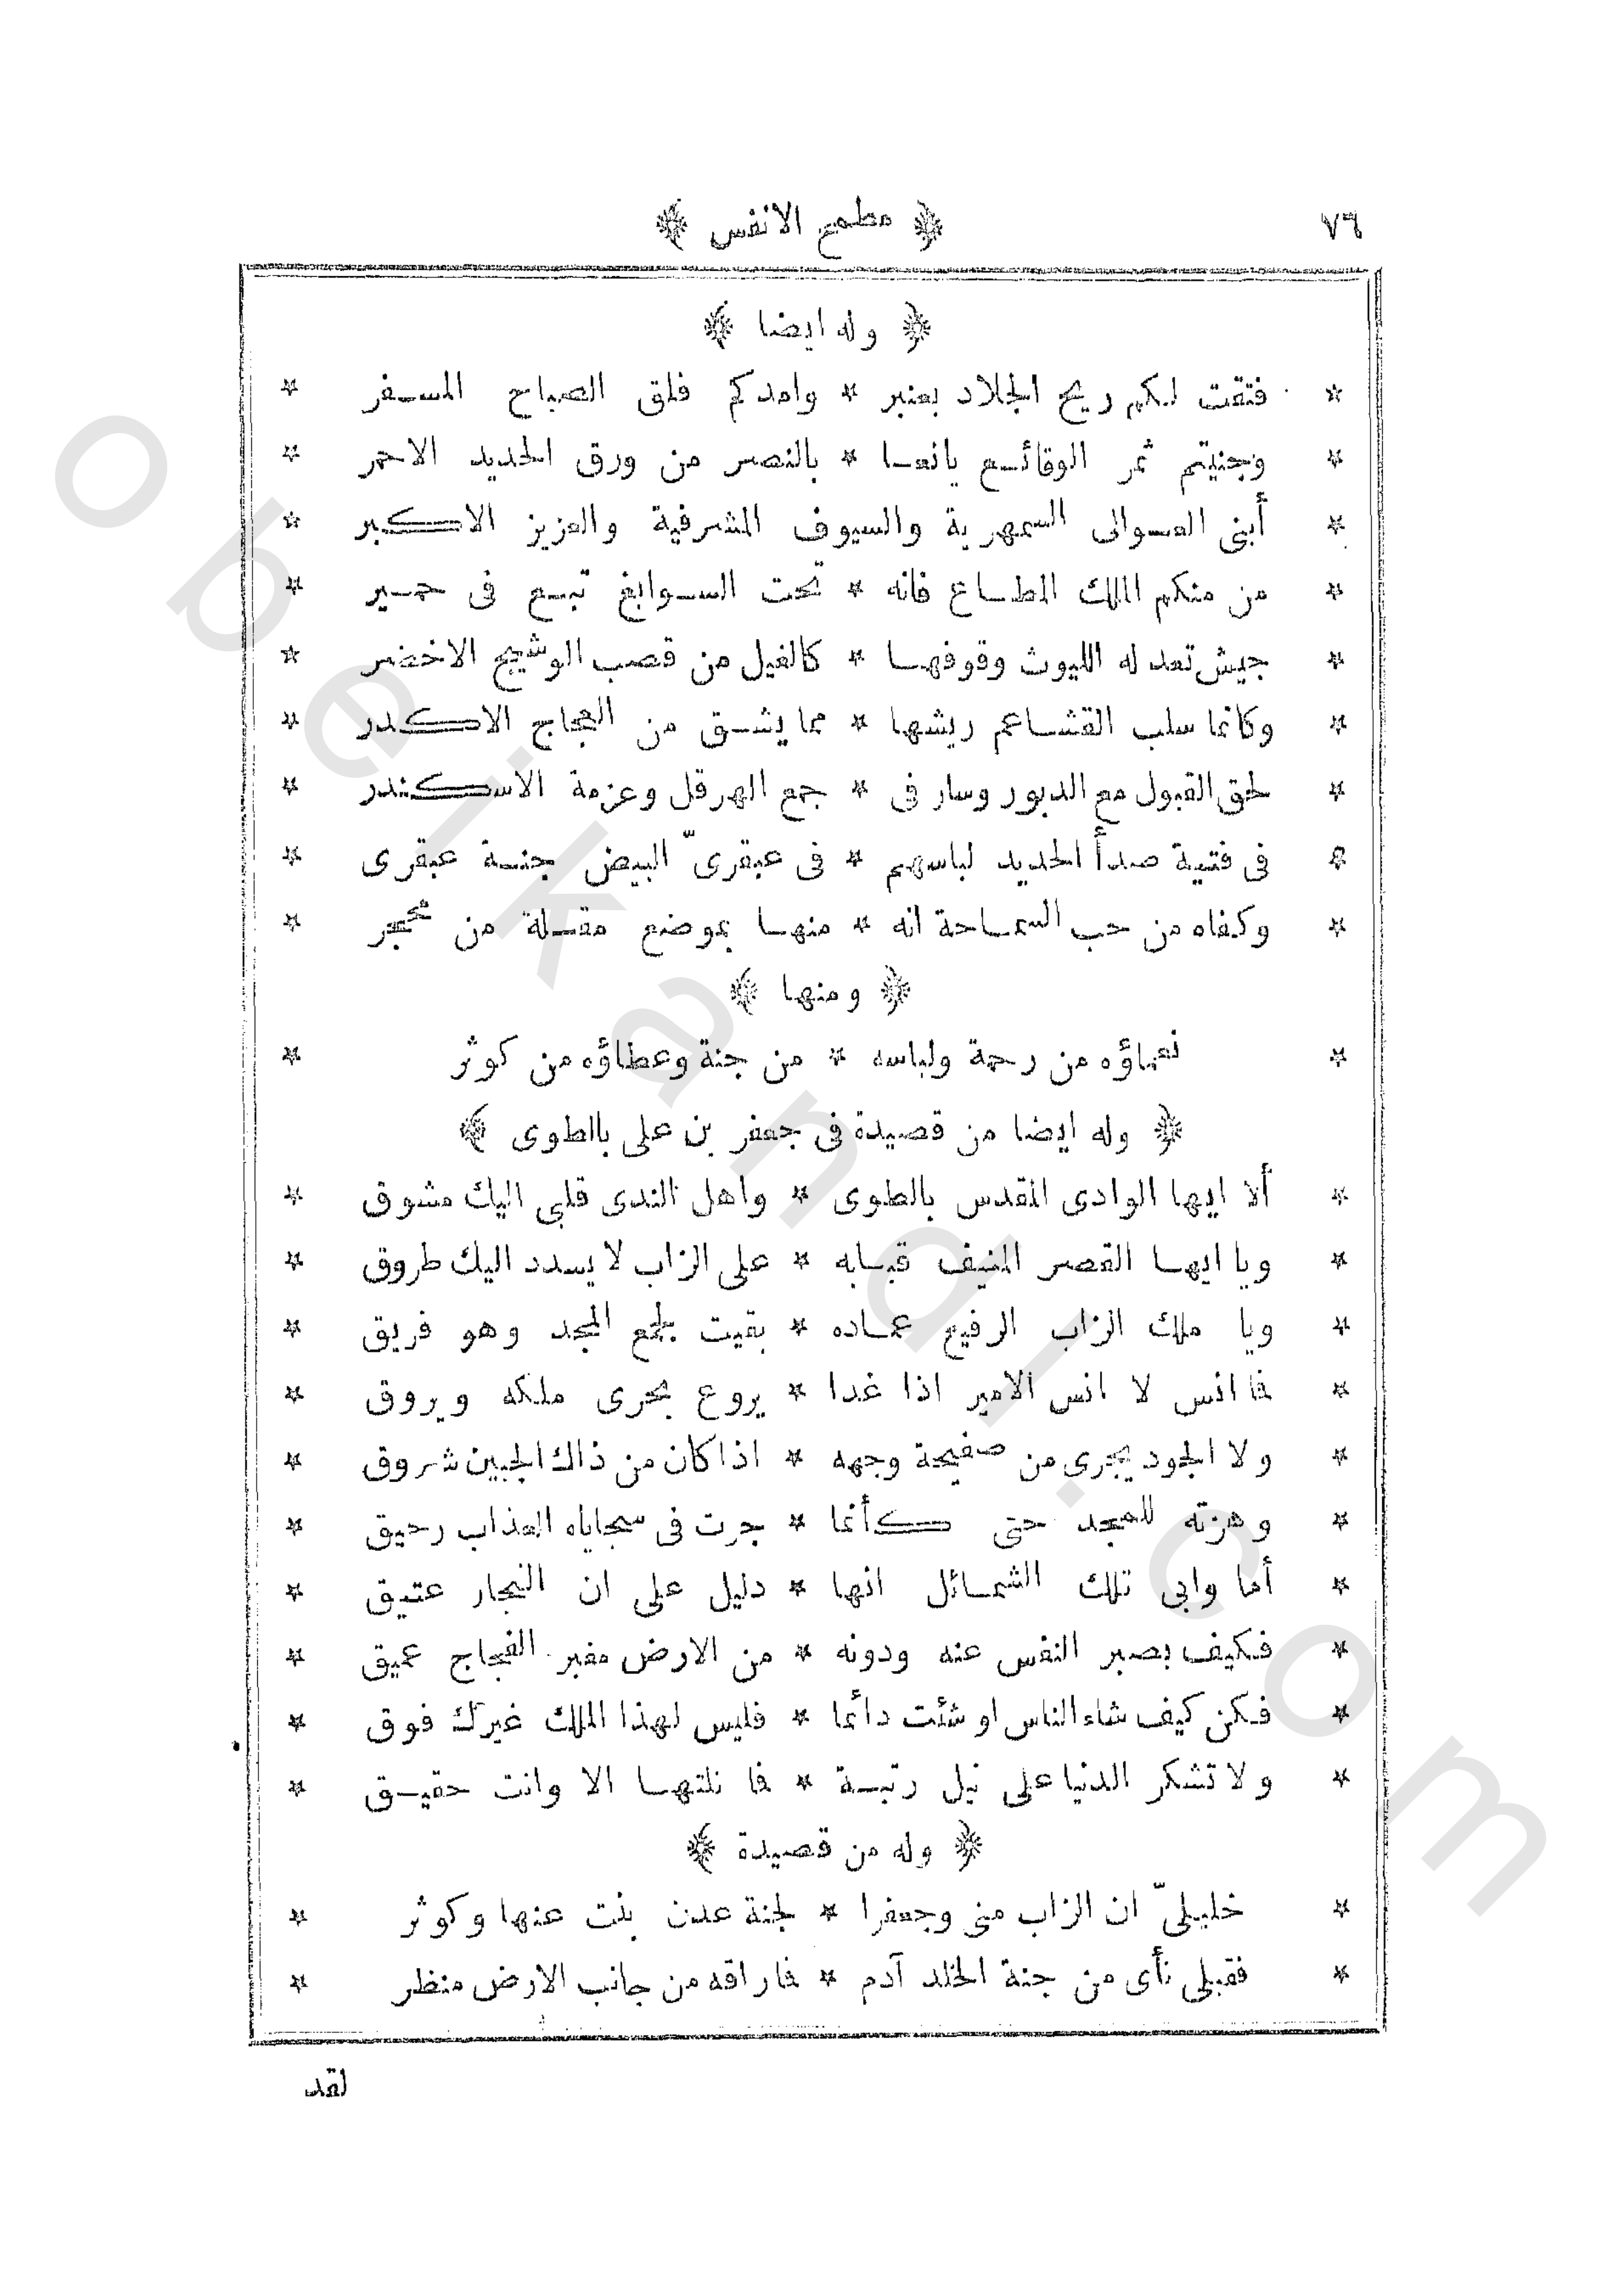 ٧٦ ﴿ مطمح الانفس ﴾
﴿ وله ايضا ﴾
* فتقت لكم ريح الجلاد بعنبر * وامدكم فلق الصباح المسفر *
* وجنيتم ثمر الوقائع يانعا * بالنصر من ورق الحديد الاحمر *
* أبنى العوالى السمهرية والسيوف المشرفية والعزيز الاكبر *
* من منكم الملك المطاع فانه * تحت السوابغ تبع فى حمير *
* جيش تعد له الليوث وقوفها * كالغيل من قصب الوشيج الاخضر *
* وكانما سلب القشاعم ريشها * مما يشق من العجاج الاكدر *
* لحق القبول مع الدبور وسار فى * جمع الهرقل وعزمة الاسكندر *
* فى فتية صدأ الحديد لباسهم * فى عبقرىّ البيض جنة عبقرى *
* وكفاه من حب السماحة انه * منها بموضع مقلة من محجر *
﴿ ومنها ﴾
* نعماؤه من رحمة ولباسه * من جنة وعطاؤه من كوثر *
﴿ وله ايضا من قصيدة فى جعفر بن على باالطوى ﴾
* ألا ايها الوادى المقدس بالطوى * واهل الندى قلبى اليك مشوق *
* ويا ايها القصر المنيف قبابه * على الزاب لا يسدد اليك طروق *
* ويا ملك الزاب الرفيع عماده * بقيت لجمع المجد وهو فريق *
* فا انس لا انس الامير اذا غدا * يروع بحرى ملكه ويروق *
* ولا الجود يجرى من صفيحة وجهه * اذا كان من ذاك الجبين شروق *
* وهزته للمجد حتى كأنما * جرت فى سجاياه العذاب رحيق *
* أما وابى تلك الشمائل انها * دليل على ان النجار عتيق *
* فكيف بصبر النفس عنه ودونه * من الارض مغبر الفجاج عميق *
* فكن كيف شاء الناس او شئت دائما * فليس لهذا الملك غيرك فوق *
* ولا تشكر الدنيا على نيل رتبة * فا نلتها الا وانت حقيق *
﴿ وله من قصيدة ﴾
* خليلىّ ان الزاب منى وجعفرا * لجنة عدن بنت عنها وكوثر *
* فقبلى نأى من جنة الخلد آدم * فا راقه من جانب الارض منظر *
لقد
obeikandi.com